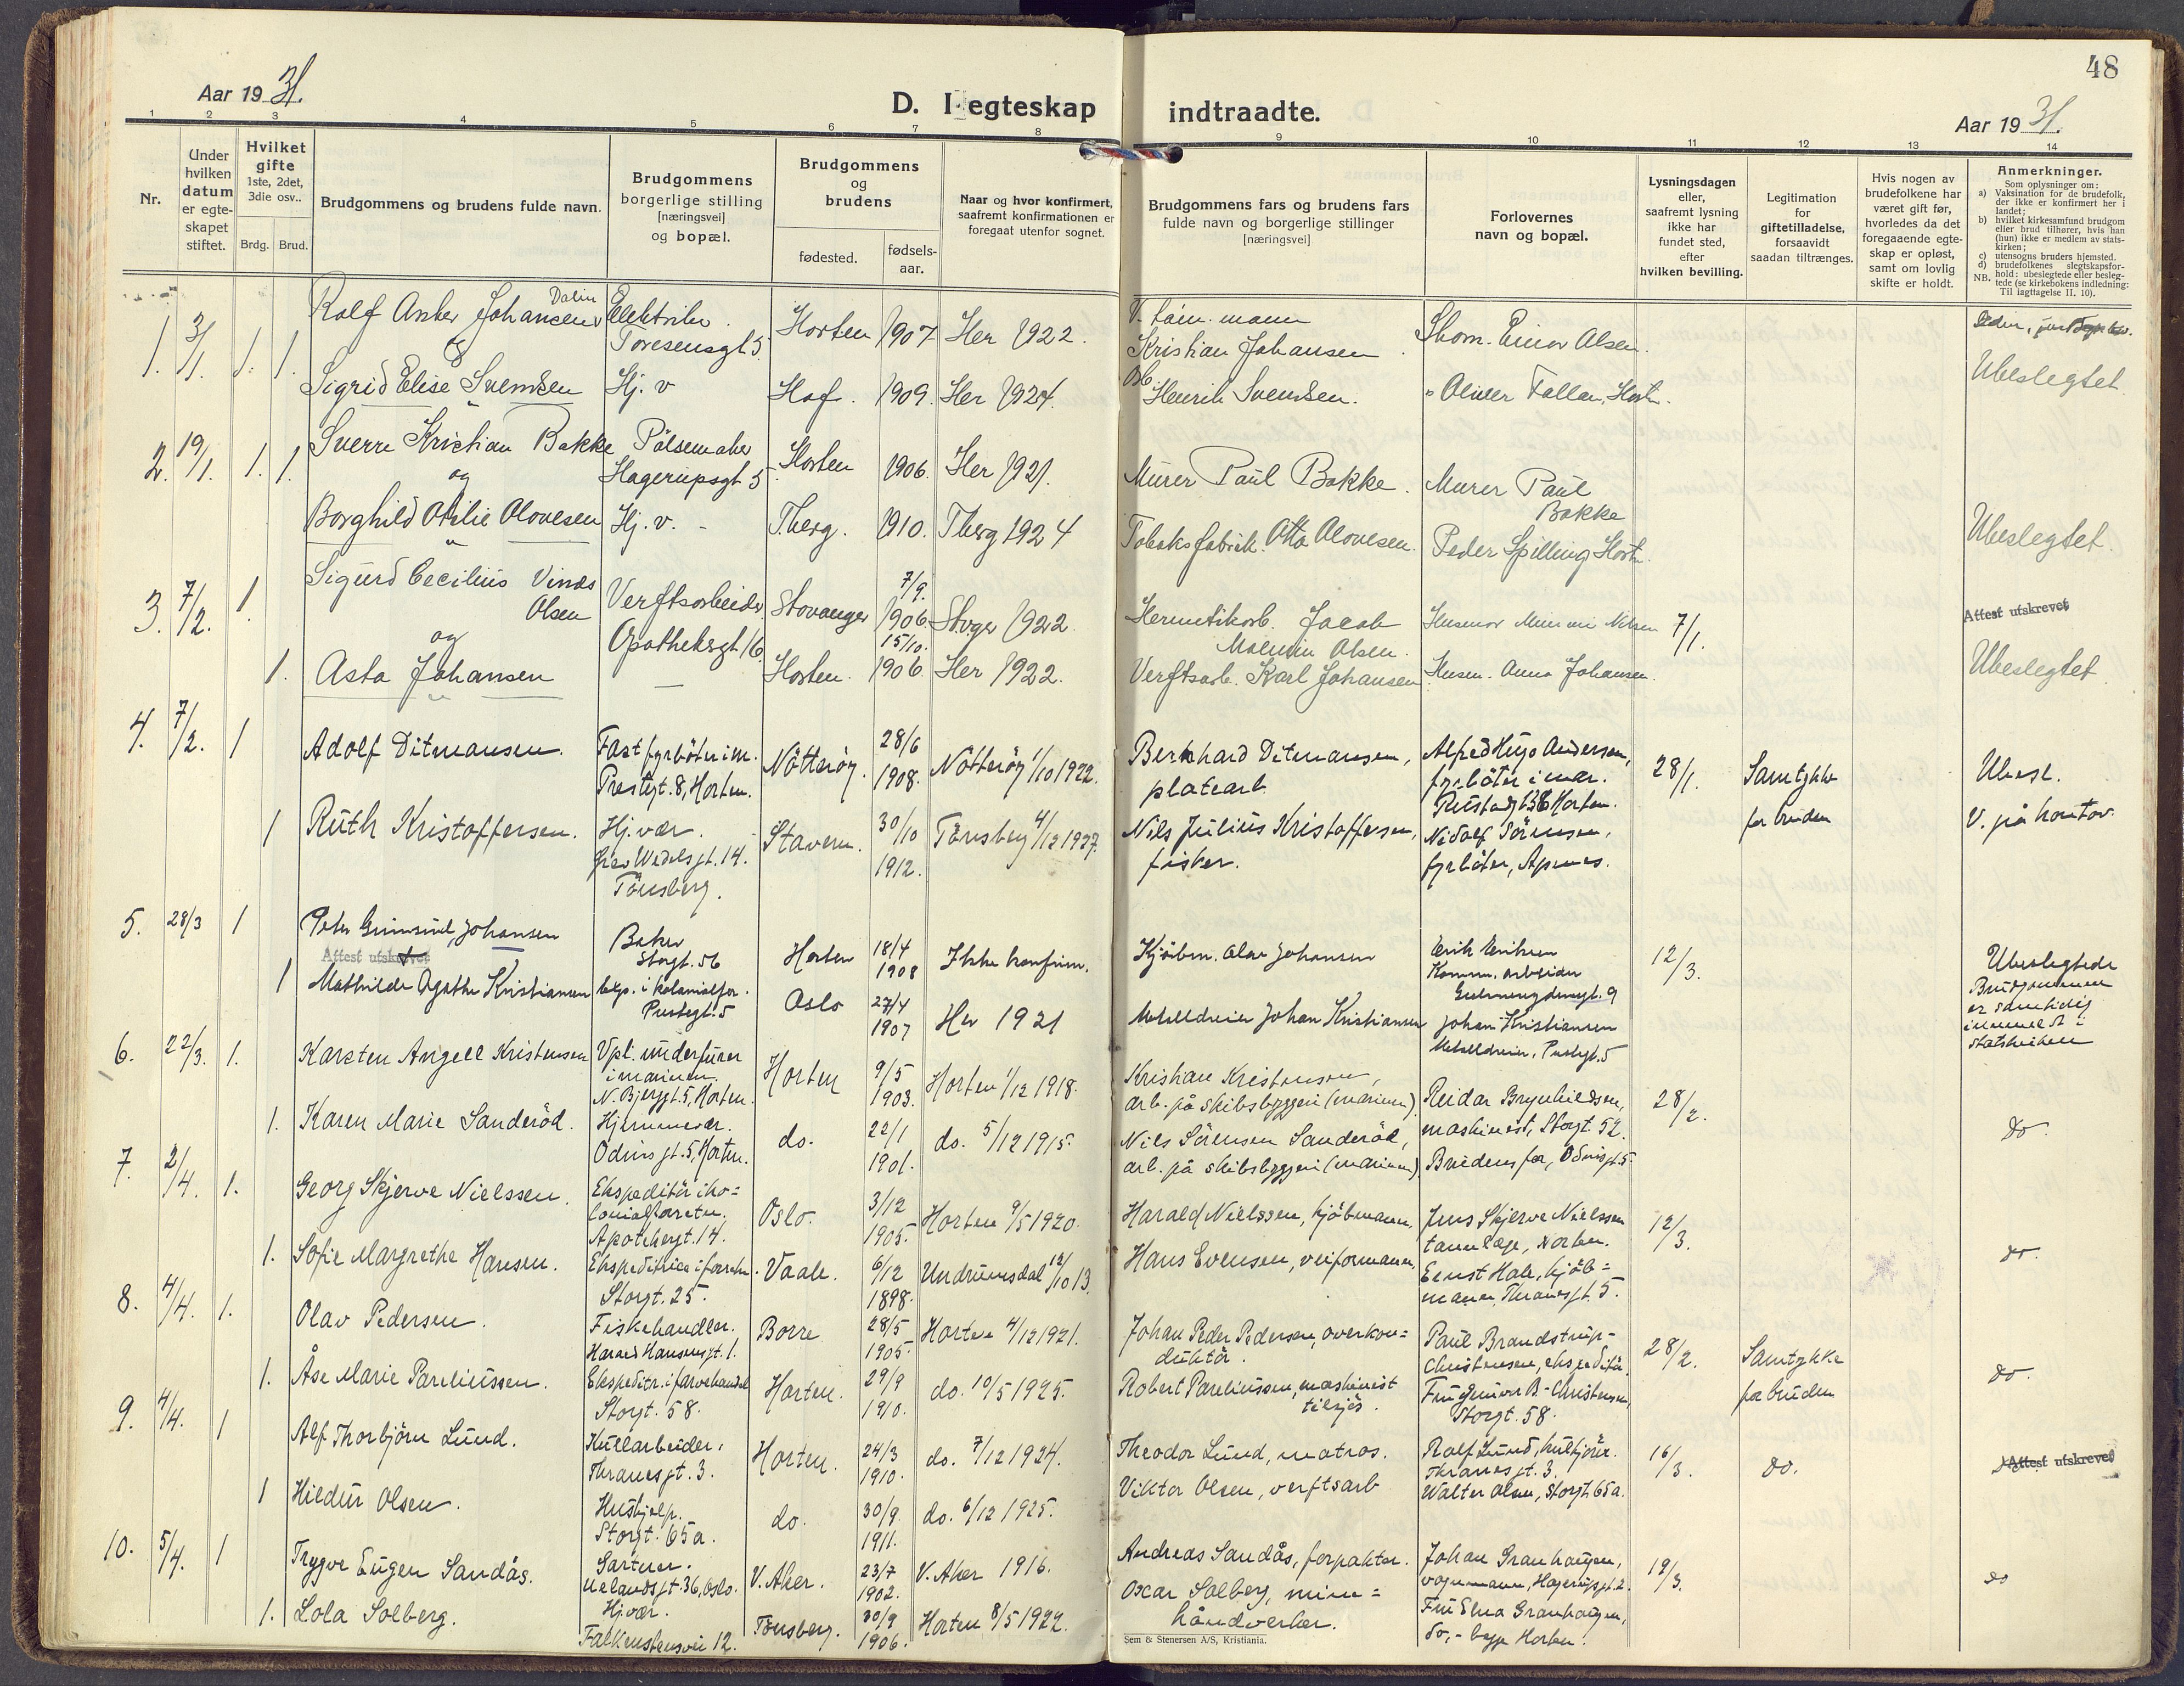 48
Aar 19 31.
D. I egteskap indtraadte.
Aar 19 31.
1 2 3 4 5 6 7 8 9 10 11 12 13 14
Nr.
Under hvilken datum er egteskapet stiftet.
Hvilket gifte 1ste, 2det, 3die osv..
Brdg. Brud.
Brudgommens og brudens fulde navn.
Brudgommens borgerlige stilling [næringsvei] og bopæl.
Brudgommens og brudens
fødested.
fødselsaar.
Naar og hvor konfirmert, saafremt konfirmationen er foregaat utenfor sognet.
Brudgommens fars og brudens fars fulde navn og borgerlige stillinger [næringsvei]
Forlovernes navn og bopæl.
Lysningsdagen eller, saafremt lysning ikke har fundet sted, efter hvilken bevilling.
Legitimation for giftetilladelse, forsaavidt saadan tiltrænges.
Hvis nogen av brudefolkene har været gift før, hvorledes da det foregaaende egteskap er opløst, samt om lovlig skifte er holdt.
Anmerkninger.
Som oplysninger om:
a) Vaksination for de brudefolk, der ikke er konfirmert her i landet;
b) hvilket kirkesamfund brudgom eller brud tilhører, hvis han (hun) ikke er medlem av statskirken;
c) utensogns bruders hjemsted.
d) brudefolkenes slegtskapsforhold: ubeslegtede eller beslegtede (se kirkebokens indledning:
NB. Til iagttagelse II. 10).
1. 3/1. 1. 1. Rolf Anker Johansen Elektriker. Toresensgt 5. Horten 1907 Her 1922. Kristian Johansen Thom. Einar Olsen.
og
Sigrid Elise Svendsen Hj. v Hof. 1909. Her 1924. Henrik Svendsen. " Oliver Fallan, Hort. Ubeslegtet
2. 19/1. 1. 1. Sverre Kristian Bakke Pölsemaker Hagerupsgt 5. Horten 1906. Her 1921. Murer Paul Bakke. Murer Paul Bakke
og
Borghild Otilie Olovesen Hj. v. - Tberg. 1910. Tberg 1924 Tobaksfabrik. Otto Olovesen. Peder Spilling Hort. Ubeslegtet.
3. 7/2. 1 Sigurd Cecilius Vinds Olsen Verftsarbeider Apotheksgt 16. Stavanger 7/9. 1906. Stvger 1922. Hermetikarb. Jacob Olsen. 7/1. Attest utskrevet
og
1. Asta Johansen Horten. 15/10. 1906 Her 1922. Verftsarb. Karl Johansen Husm. Anna Johansen. Ubeslegtet
4. 7/2. 1 Adolf Ditmansen. Fast fyrböter i m. Prestegt. 8, Horten. Nötteröy. 28/6 1908. Nötteröy 1/10 1922. Bernhard Ditmansen, platearb. Alfred Hugo Andersen, fyrböter i mar. Horten. 28/1. Samtykke for bruden Ubesl. V. på kontor.
1 Ruth Kristoffersen. Hj. vær. Grev Wedels gt. 14. Tönsberg. Stavern. 30/10 1912. Tönsberg 4/12 1927. Nils Julius Kristoffersen, fisker. Nidolf Sörensen, fyrböter, Apenes.
5. 28/3 1 Peter Johansen Baker Storgt. 56 Horten 18/4 1908 Ikke konfirm. Kjöbm. Olav Johansen Erik Eriksen Komm. arbeider 12/3. Ubeslegtede Brudgommen er samtidig innmeldt i statskirken
Attest utskrevet
1 Mathilde Agathe Kristiansen Eksp. i kolonialfor. Prestegt. 5 Oslo 27/4 1907 Her 1921 Metalldreier Johan Kristiansen Johan Kristiansen Metalldreier, Prestegt. 5
6. 22/3. 1. Karsten Angell Kristensen Vpl. underfurer i marinen. N. Bjergt. 5, Horten. Horten 9/5 1903. Horten 1/12 1918. Kristian Kristensen, arb. på skibsbyggeri (marinen). Reidar Brynhildsen, maskinist, Storgt. 52. 28/2.
1. Karen Marie Sanderöd. Hjemmevær. Odins gt. 5, Horten. do. 22/1 1901. do. 5/12 1915. Nils Sörensen Sanderöd, arb. på skibsbyggeri (marinen). Brudens far, Odinsgt. 5. do.
7. 2/4. 1. Georg Skjerve Nielssen. Ekspeditör i kolonialforretn. Apotekergt. 14. Oslo. 3/12 1905. Horten 9/5 1920. Harald Nielssen, kjöbmann. Jens Skjerve Nielssen tannlæge, Horten. 12/3.
1. Sofie Margrethe Hansen. Ekspeditrice i forretn. Storgt. 25. Vaale. 6/12 1898. Undrumsdal 12/10 13. Hans Evensen, veiformann. Ernst Hale, kjöbmann, Thranes gt. 5. do.
8. 4/4. 1. Olav Pedersen. Fiskehandler. Harald Hansens gt. 1. Borre 28/5 1905. Horten 4/12 1921. Johan Peder Pedersen, overkonduktör. Paul Brandstrup-Christensen, ekspeditör. 28/2. Samtykke for bruden
1. Åse Marie Pareliussen. Ekspeditr. i farvehandel Storgt. 58. Horten. 29/9 1910. do. 10/5 1925. Robert Pareliussen, maskinist tilsjös. Fru B.-Christensen, Storgt. 58. do.
9. 4/4. 1 Alf Thorbjörn Lund. Kullarbeider, Thranes gt. 3. Horten. 24/3 1910. do. 7/12 1924. Theodor Lund, matros. Rolf Lund, kulkjörer. Thranes gt. 3. 16/3. do. Attest utskrevet
1 Hildur Olsen. Hushjelp. Storgt. 65a. do. 30/9. 1911. do. 6/12 1925. Viktor Olsen, verftsarb Walter Olsen, Storgt. 65a.
10. 5/4. 1 Trygve Eugen Sandås. Gartner. Uelandsgt. 36, Oslo. V. Aker. 23/7 1902. V. Aker 1916. Andreas Sandås, forpakter. Johan Granhaugen, vognmann, Hagerupsgt. 2. 19/3. do
1. Lola Solberg. Hj. vær. Falkenstensvei 12. Tönsberg. 30/9 1906. Horten 8/5 1922. Oscar Solberg, minehåndverker. Fru Elna Granhaugen, do, - begge Horten.
Sem & Stenersen A/S, Kristiania.